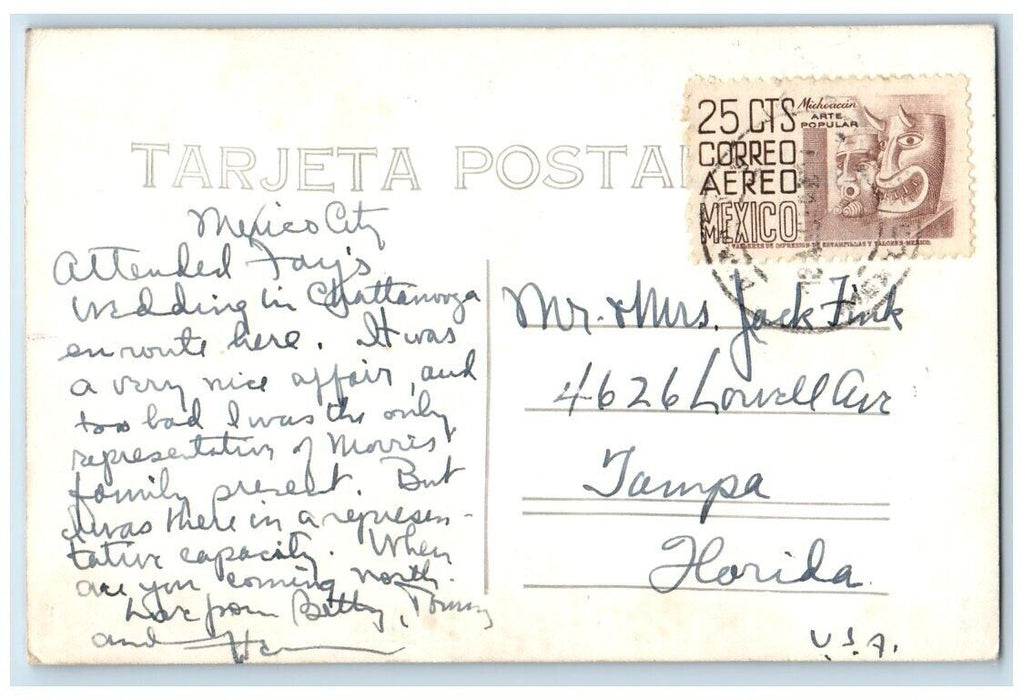 TARJETA POSTAL
25 CTS
CORREO
AEREO
MEXICO
Michoacán
ARTE
POPULAR
TALLERES DE IMPRESION DE ESTAMPILLAS Y VALORES-MEXICO.
Mexico City
Attended Fay's
wedding in Chattanooga
en route here. It was
a very nice affair, and
too bad I was the only
representative of Morris
family present. But
I was there in a represen-
tative capacity. When
are you coming north.
Love from Betty, Tommy
and
Mr. & Mrs. Jack Fink
4626 Lowell Ave
Tampa
Florida.
U.S.A.